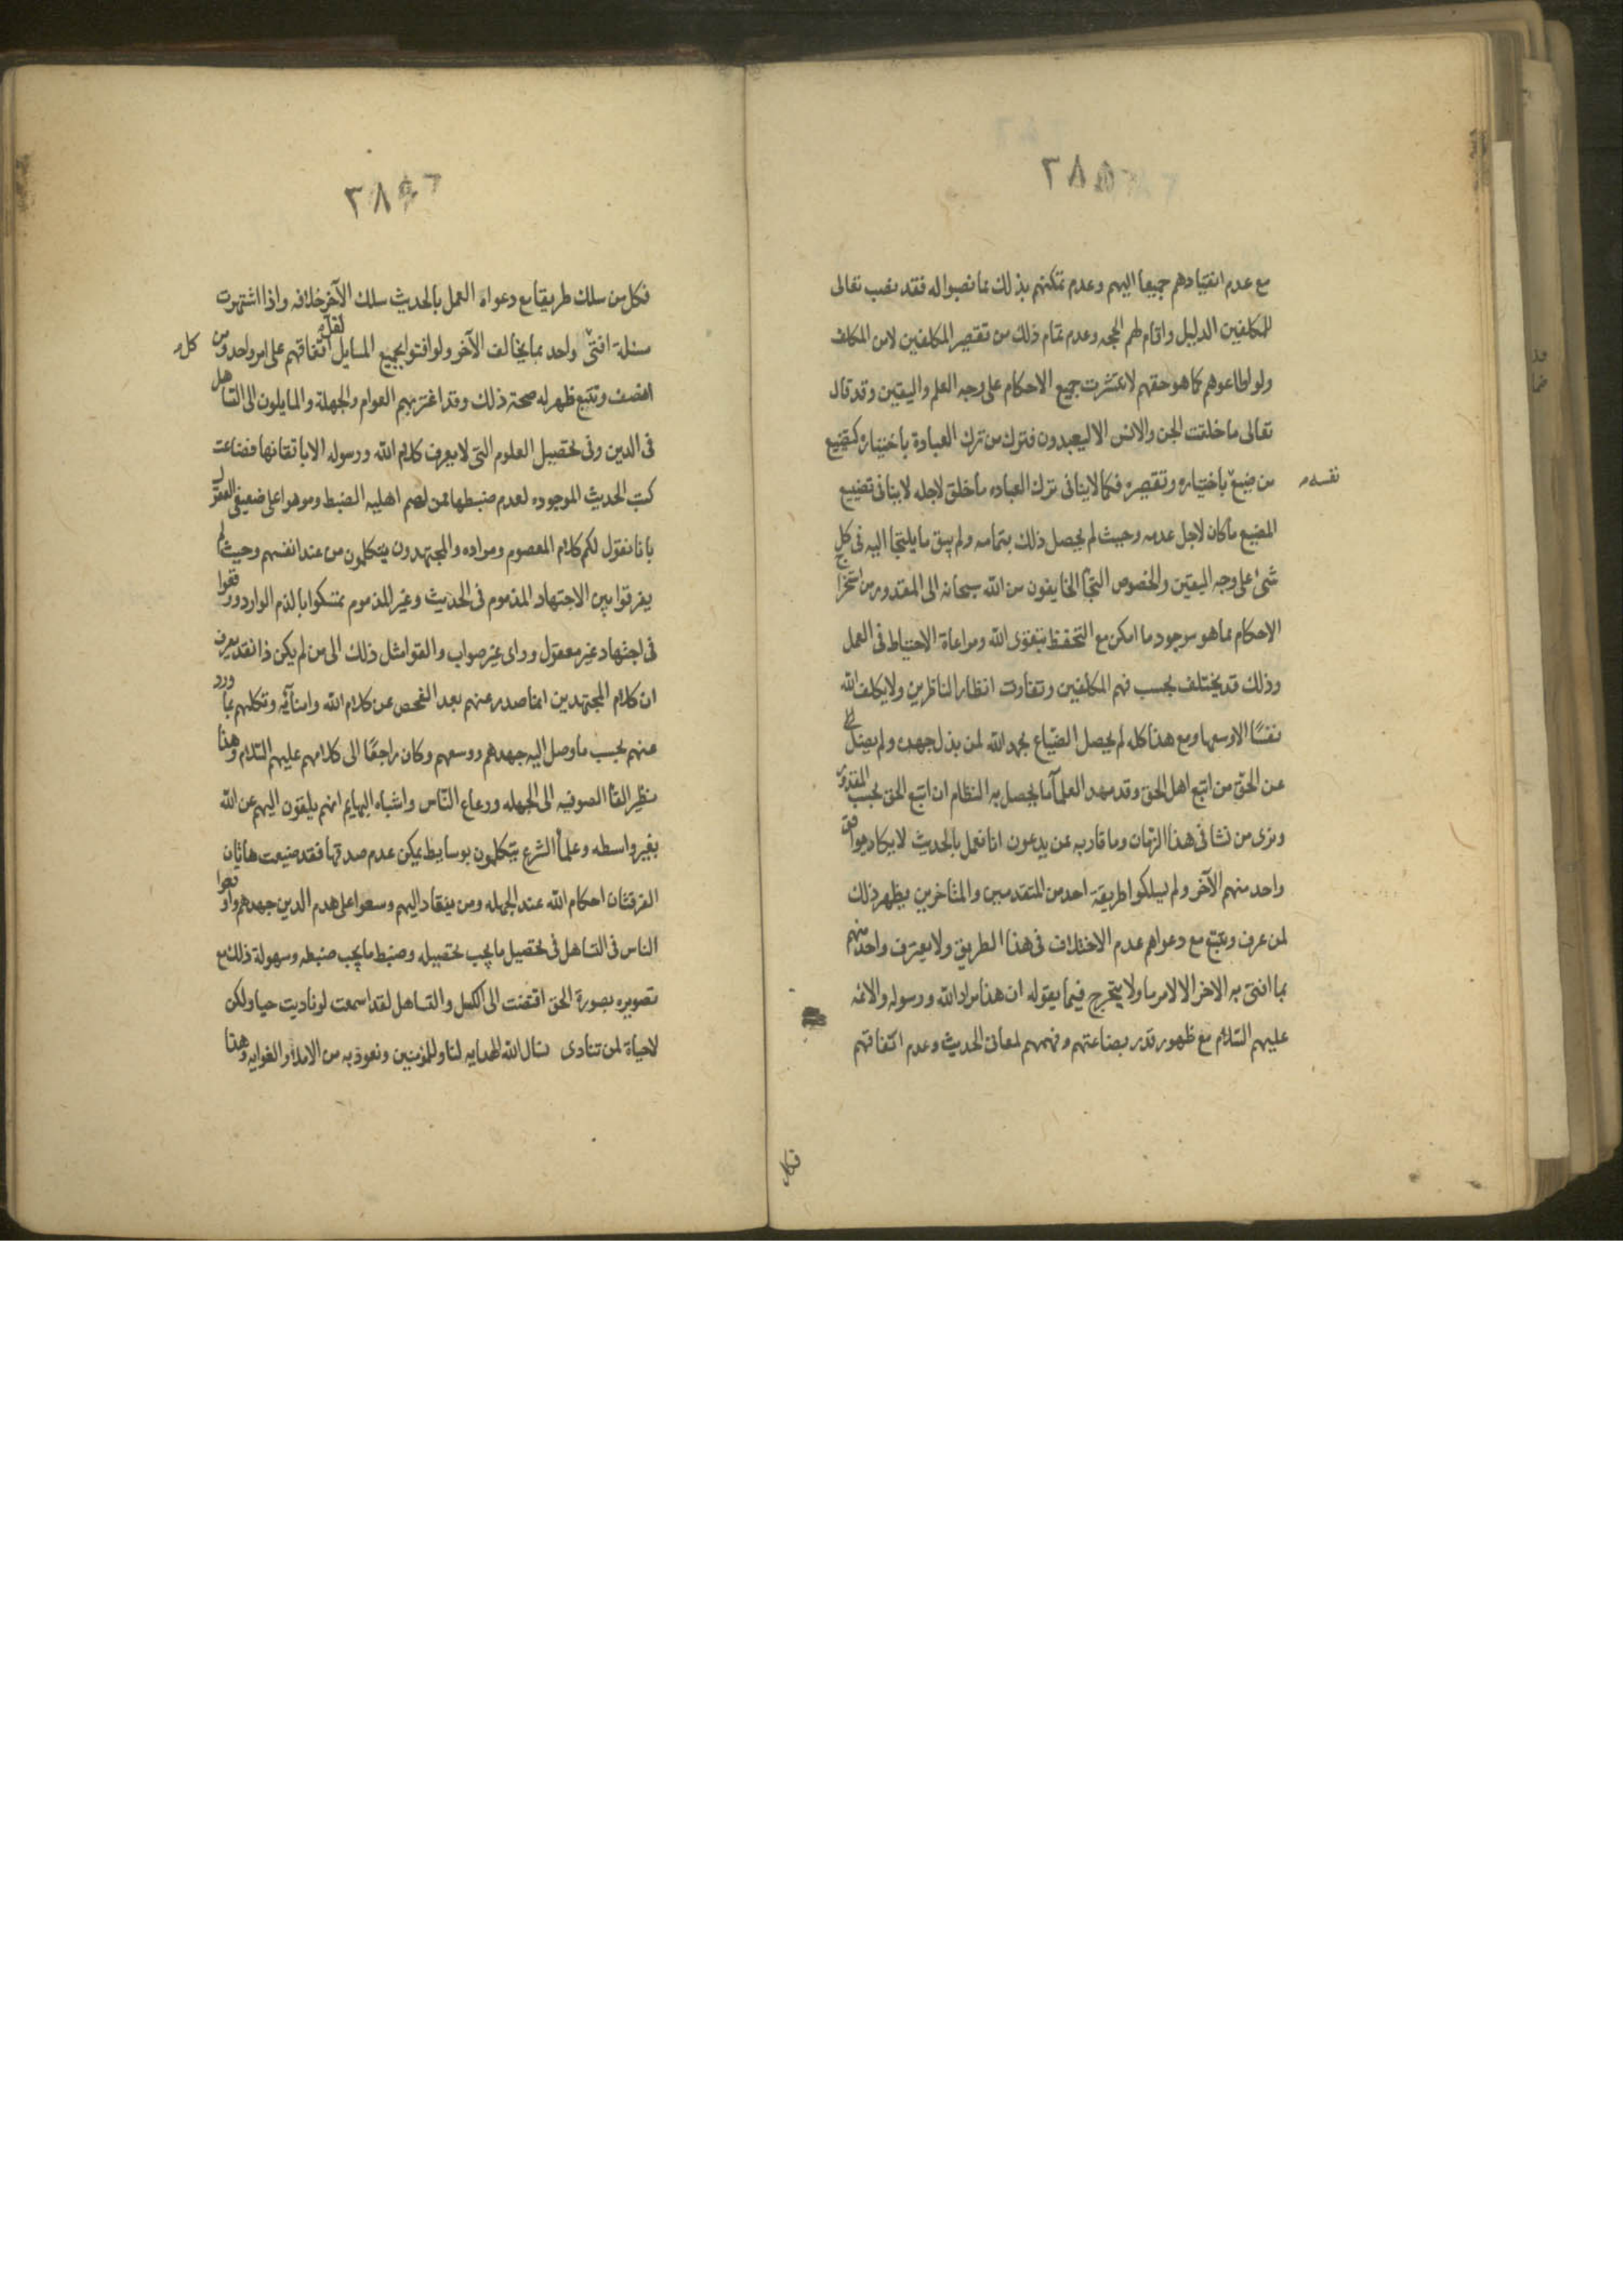 ٢٨٥
مع عدم انقيادهم جميعا اليهم وعدم تمكنهم بذلك مما نصبوا له فقد نصب تعالى
للمكلفين الدليل واقام لهم الحجه وعدم تمام ذلك من تقصير المكلفين لا من المكلف
ولو اطاعوهم كما هو حقهم لانتشرت جميع الاحكام على وجه العلم واليقين وقد قال
تعالى ما خلقت الجن والانس الا ليعبدون فترك من ترك العبادة باختياره كتضييع
من ضيع نفسه باختياره وتقصيره فكما لا ينافى ترك العباده ما خلق لاجله لا ينافى تضييع
المضيع ما كان لاجل عدمه وحيث لم يحصل ذلك بتمامه ولم يبق ما يلتجا اليه فى كل
شئ على وجه اليقين والخصوص التجأ الخايفون من الله سبحانه الى المقدور من استخراج
الاحكام مما هو موجود ما امكن مع التحفظ بتقوى الله ومراعاة الاحتياط فى العمل
وذلك قد يختلف بحسب فهم المكلفين وتفاوت انظار الناظرين ولا يكلف الله
نفسًا الا وسعها ومع هذا كله لم يحصل الضياع بحمد الله لمن بذل جهده ولم يضل
عن الحق من اتبع اهل الحق وقد مهد العلمآ ما يحصل به النظام ان اتبع الحق بحسب المقدور
ونرى من نشا فى هذا الزمان وما قاربه عن يدعون انا نعمل بالحديث لا يكاد يوافق
واحد منهم الآخر ولم يسلكوا طريقة احد من المتقدمين والمتاخرين يظهر ذلك
لمن عرف وتتبع مع دعواهم عدم الاختلاف فى هذا الطريق ولا يعترف واحد منهم
بما افتى به الاخر الا لامر ما ولا يتحرج فيما يقوله ان هذا مراد الله ورسوله والائمه
عليهم السّلام مع ظهور قدر بضاعتهم وفهمهم لمعانى الحديث وعدم اتفاقهم
فكل
٢٨٦
فكل من سلك طريقا مع دعواه العمل بالحديث سلك الآخر خلافه واذا اشتهرت
مسئلة افتى واحد بما يخالف الآخر ولو افتوا بجميع المسايل لقل اتفاقهم على امر واحد وكل من
انصف وتتبع ظهر له صحة ذلك وقد اغتر بهم العوام والجهلة والمايلون الى التساهل
فى الدين وفى تحصيل العلوم التى لا يعرف كلام الله ورسوله الا باتقانها فضاعت
كتب الحديث الموجوده لعدم ضبطها ممن لهم اهلية الضبط وموهوا على ضعيفى العقول
بانا نقول لكم كلام المعصوم ومراده والمجتهدون يتكلمون من عند انفسهم وحيث لم
يفرقوا بين الاجتهاد المذموم فى الحديث وغير المذموم تمسكوا بالذم الوارد ووقعوا
فى اجتهاد غير معقول وراى غير صواب والقوا مثل ذلك الى من لم يكن ذا نقد يعرف
ان كلام المجتهدين انما صدر عنهم بعد الفحص عن كلام الله وامنآئه وتكلهم بما ورد
عنهم بحسب ما وصل اليه جهدهم ووسعهم وكان راجعًا الى كلامهم عليهم السّلام وهذا
نظير القآ الصوفيه الى الجهله ورعاع النّاس واشباه البهايم انهم يلقون اليهم عن الله
بغير واسطه وعلمآ الشرع يتكلمون بوسايط يمكن عدم صدقها فقد ضيعت هاتان
الفرقتان احكام الله عند الجهله ومن ينقاد اليهم وسعوا على هدم الدين جهدهم واوقعوا
الناس فى التساهل فى تحصيل ما يجب تحصيله وضبط ما يجب ضبطه وسهولة ذلك مع
تصويره بصورة الحق افتضت الى الكسل والتساهل لقد اسمعت لو ناديت حيا ولكن
لا حياة لمن تنادى نسال الله الهدايه لنا وللمؤمنين ونعوذ به من الاملآ والغوايه وهذا